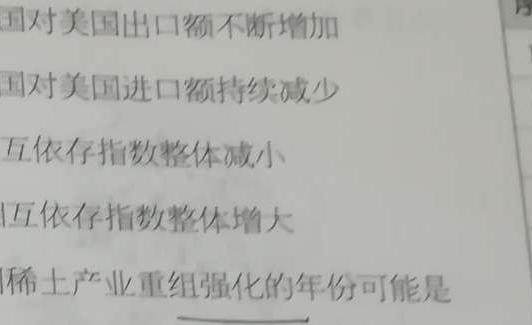 国对美国出口额不断增加
国对美国进口额持续减少
互依存指数整体减小
互依存指数整体增大
稀土产业重组强化的年份可能是